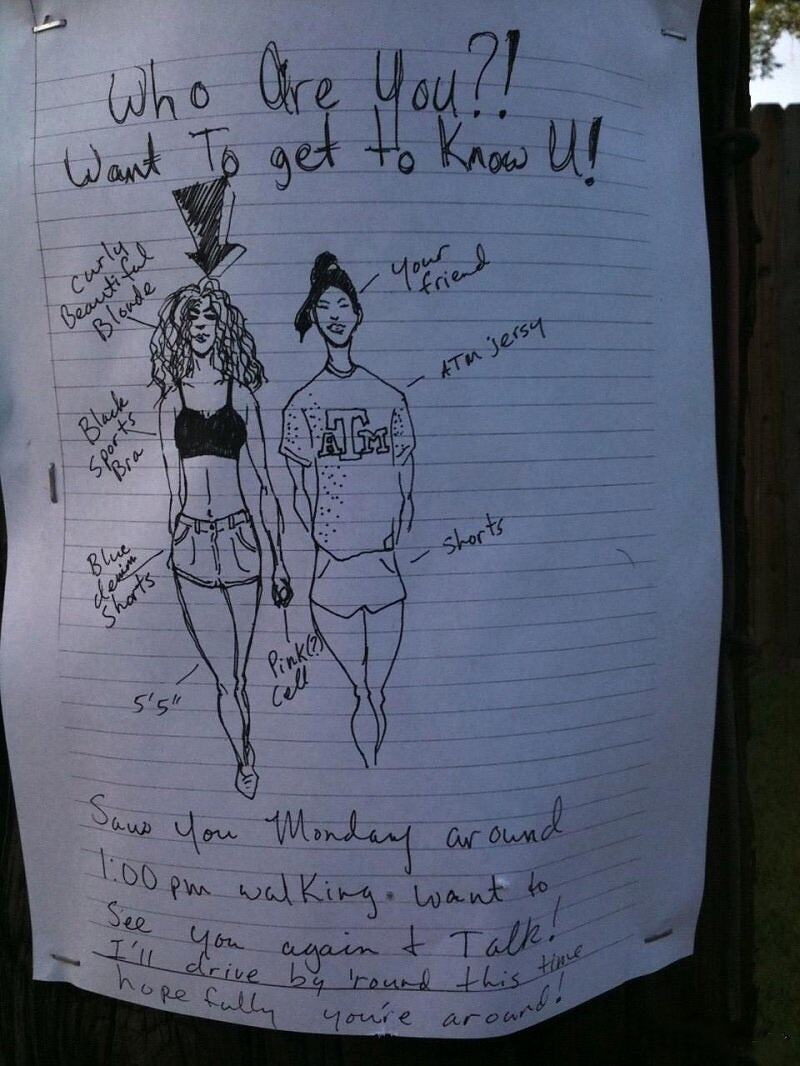 Who Are You?!
Want To get to Know U!
Curly
Beautiful
Blonde
your
friend
ATM jersy
Black
Sports
Bra
ATM
Shorts
Blue
denim
Shorts
Pink(?)
Cell
5'5"
Saw You Monday around
1:00 pm walking. Want to
See you again & Talk!
I'll drive by 'round this time
hopefully you're around!